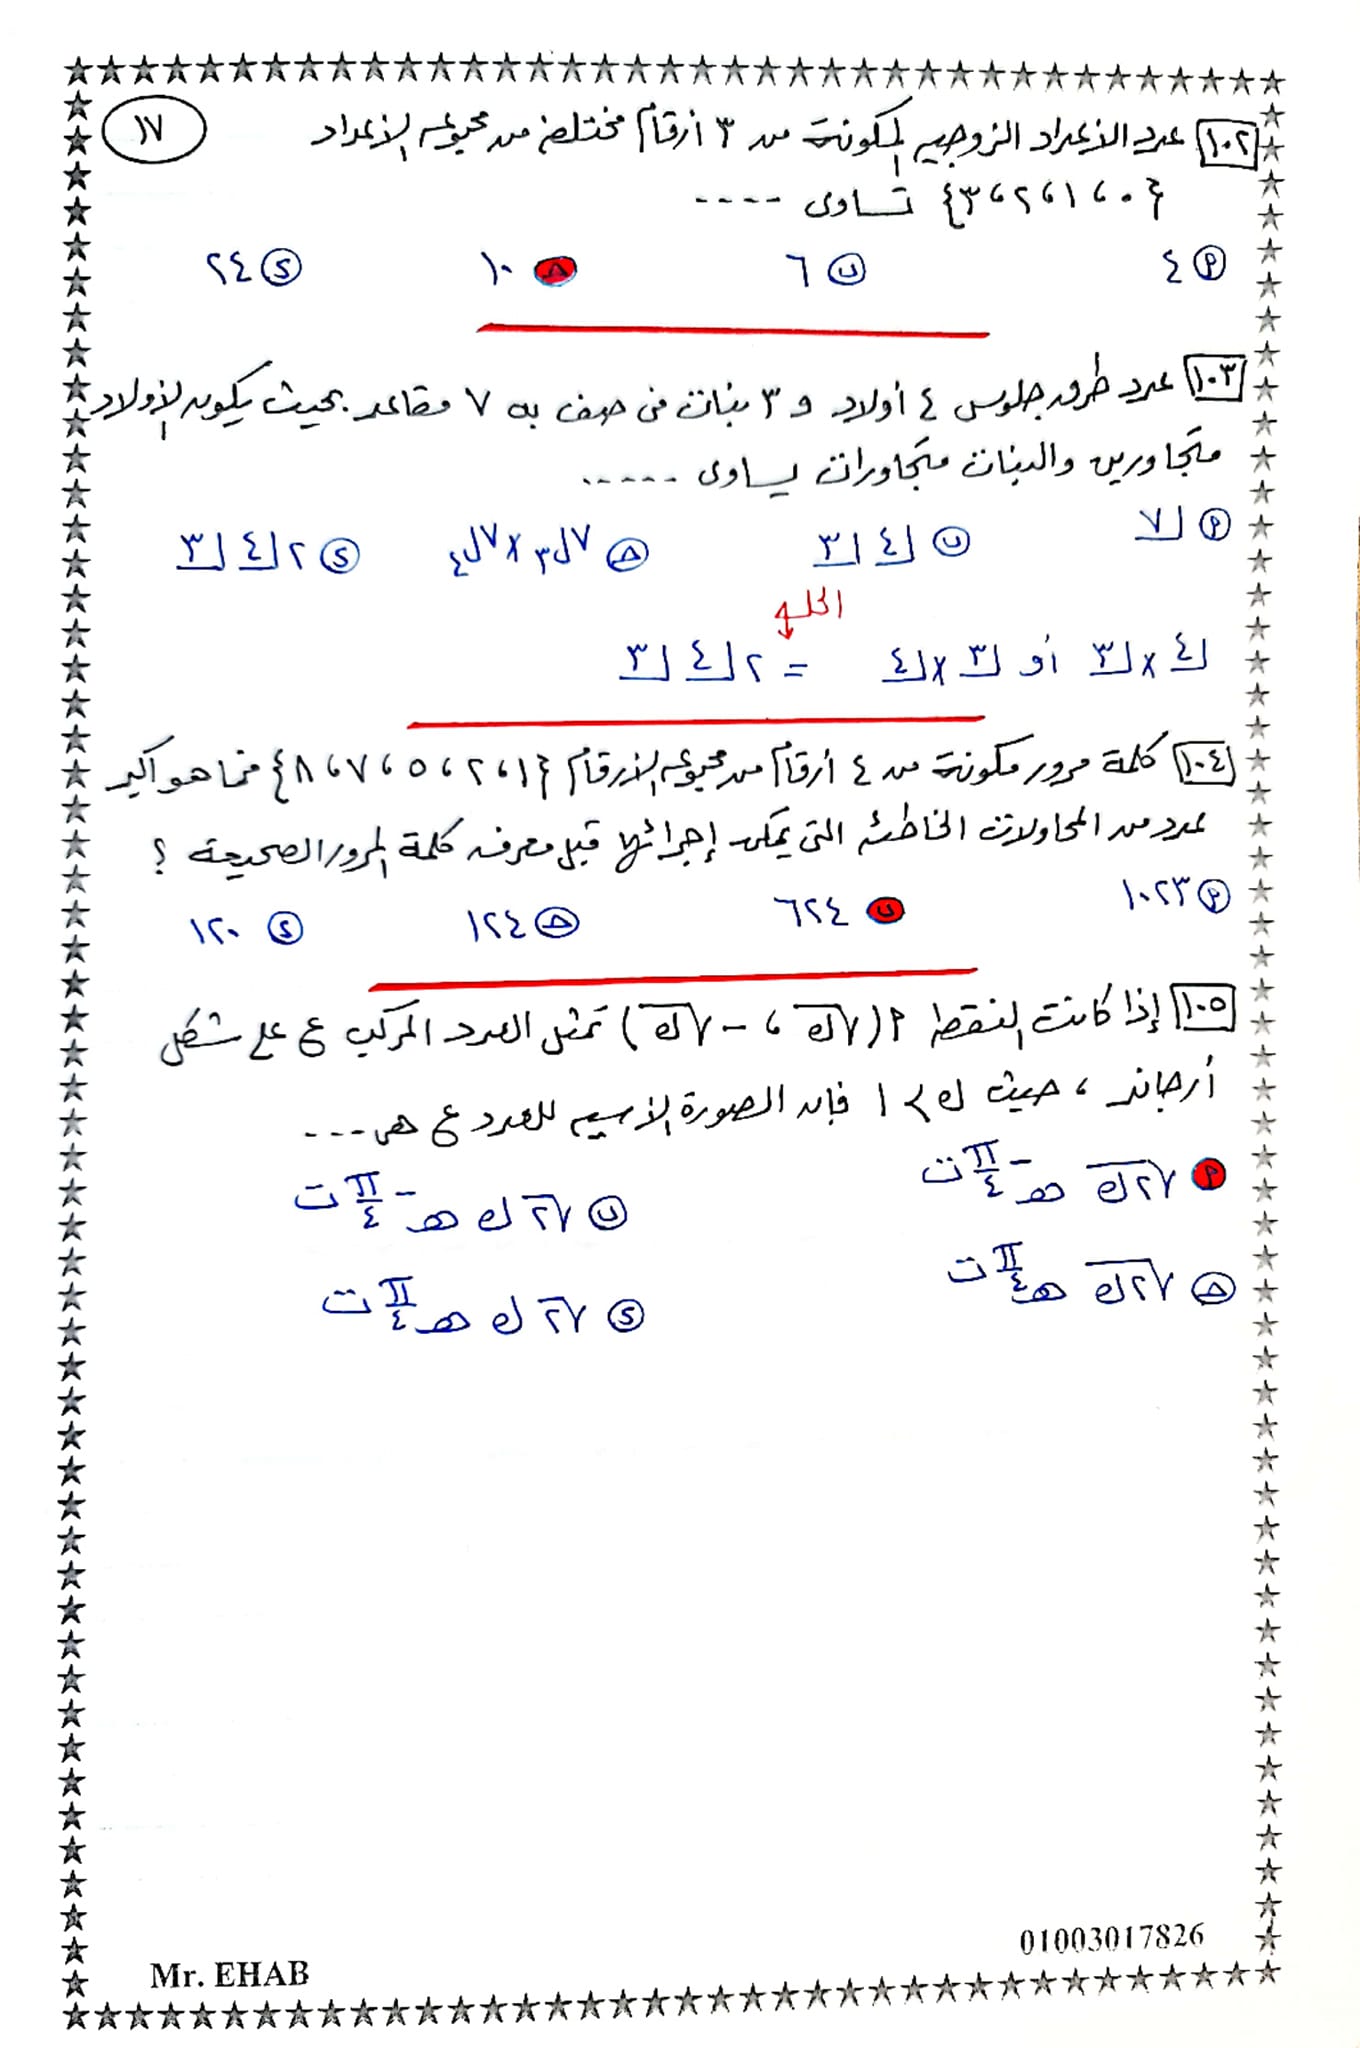 ١٧
١٠٢ عدد الأعداد الزوجيه المكونة من ٣ أرقام مختلفه من مجموعه الأعداد
{٠، ١، ٢، ٣} تساوى ----
Ⓟ ٤ ⓤ ٦ Ⓐ ١٠ Ⓢ ٢٤
١٠٣ عدد طرق جلوس ٤ أولاد و ٣ بنات فى صف به ٧ مقاعد. بحيث يكون الأولاد
متجاورين والبنات متجاورات يساوى -----
أ ⌊٧ ب ⌊٤ ⌊٣ ج ٧ل٣ × ٧ل٤ د ٢⌊٤ ⌊٣
الحل
⌊٤ × ⌊٣ أو ⌊٣ × ⌊٤ = ٢⌊٤ ⌊٣
١٠٤ كلمة مرور مكونة من ٤ أرقام من مجموعه الأرقام {١، ٢، ٥، ٧، ٨} فما هو أكبر
عدد من المحاولات الخاطئه التى يمكن إجرائها قبل معرفه كلمة المرور الصحيحة ؟
أ ١٠٢٣ ب ٦٢٤ ج ١٢٤ د ١٢٠
١٠٥ إذا كانت النقطه أ(√ك ، -√ك) تمثل العدد المركب ع على شكل
أرجاند ، حيث ك > ١ فإن الصورة الأسيه للعدد ع هى ---
أ √٢ك هـ^(-π/٤ ت) ب √٢ ك هـ^(-π/٤ ت)
ج √٢ك هـ^(π/٤ ت) د √٢ ك هـ^(π/٤ ت)
01003017826
Mr. EHAB